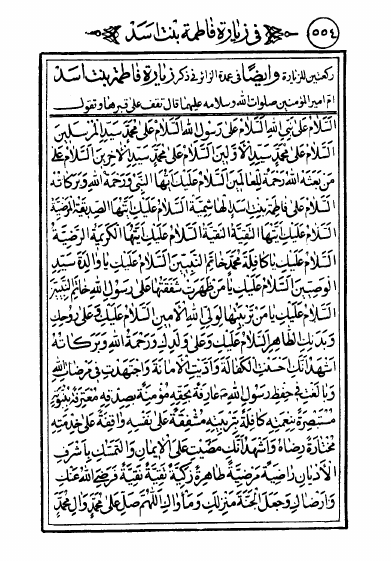 ٥٥٤
في زيارة فاطمة بنت اسد
ركعتين للزيارة وايضا في عمدة الزائر في ذكر زيارة فاطمة بنت اسد
ام امير المؤمنين صلوات الله وسلامه عليهما قال تقف على قبرها وتقول
اَلسَّلامُ عَلى نَبِيِّ اللهِ اَلسَّلامُ عَلى رَسُولِ اللهِ اَلسَّلامُ عَلى مُحَمَّدٍ سَيِّدِ الْمُرْسَلينَ
اَلسَّلامُ عَلى مُحَمَّدٍ سَيِّدِ الْاَوَّلينَ اَلسَّلامُ عَلى مُحَمَّدٍ سَيِّدِ الْاخِرينَ اَلسَّلامُ عَلى
مَنْ بَعَثَهُ اللهُ رَحْمَةً لِلْعالَمينَ اَلسَّلامُ عَلَيْكَ اَيُّهَا النَّبِيُّ وَرَحْمَةُ اللهِ وَبَرَكاتُهُ
اَلسَّلامُ عَلى فاطِمَةَ بِنْتِ اَسَدٍ الْهاشِمِيَّةِ اَلسَّلامُ عَلَيْكِ اَيَّتُهَا الصِّدّيقَةُ الْمَرْضِيَّةُ
اَلسَّلامُ عَلَيْكِ اَيَّتُهَا التَّقِيَّةُ النَّقِيَّةُ اَلسَّلامُ عَلَيْكِ اَيَّتُهَا الْكَريمَةُ الرَّضِيَّةُ
اَلسَّلامُ عَلَيْكِ يا كافِلَةَ مُحَمَّدٍ خاتَمِ النَّبِيّينَ اَلسَّلامُ عَلَيْكِ يا والِدَةَ سَيِّدِ
الْوَصِيّينَ اَلسَّلامُ عَلَيْكِ يا مَنْ ظَهَرَتْ شَفَقَتُها عَلى رَسُولِ اللهِ خاتَمِ النَّبِيّينَ
اَلسَّلامُ عَلَيْكِ يا مَنْ تَرْبِيَتُها لِوَلِيِّ اللهِ الْاَمينِ اَلسَّلامُ عَلَيْكِ وَعَلى رُوحِكِ
وَبَدَنِكِ الطّاهِرِ اَلسَّلامُ عَلَيْكِ وَعَلى وَلَدِكِ وَرَحْمَةُ اللهِ وَبَرَكاتُهُ
اَشْهَدُ اَنَّكِ اَحْسَنْتِ الْكَفالَةَ وَاَدَّيْتِ الْاَمانَةَ وَاجْتَهَدْتِ في مَرْضاتِ اللهِ
وَبالَغْتِ في حِفْظِ رَسُولِ اللهِ عارِفَةً بِحَقِّهِ مُؤْمِنَةً بِصِدْقِهِ مُعْتَرِفَةً بِنُبُوَّتِهِ
مُسْتَبْصِرَةً بِنِعْمَتِهِ كافِلَةً بِتَرْبِيَتِهِ مُشْفِقَةً عَلى نَفْسِهِ واقِفَةً عَلى خِدْمَتِهِ
مُخْتارَةً رِضاهُ وَاَشْهَدُ اَنَّكِ مَضَيْتِ عَلَى الْايمانِ وَالتَّمَسُّكِ بِاَشْرَفِ
الْاَدْيانِ راضِيَةً مَرْضِيَّةً طاهِرَةً زَكِيَّةً تَقِيَّةً نَقِيَّةً فَرَضِيَ اللهُ عَنْكِ
وَاَرْضاكِ وَجَعَلَ الْجَنَّةَ مَنْزِلَكِ وَمَأْواكِ اَللّهُمَّ صَلِّ عَلى مُحَمَّدٍ وَالِ مُحَمَّدٍ